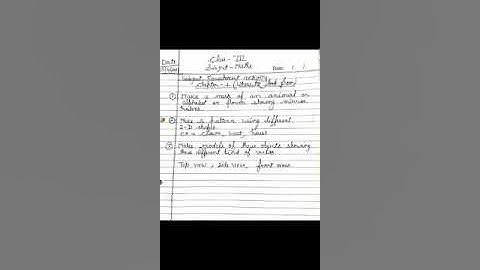 Date
Class - III
Subject - Maths
Subject Enrichment activity
Chapter - 1 (Where to Look From)
① Make a mask of an animal or
alphabet or flower showing mirror
halves.
② Make a pattern using different
2-D shapes
ex = clown, boat, house
③ Make models of three objects showing
three different kind of views
Top view, side view, front view